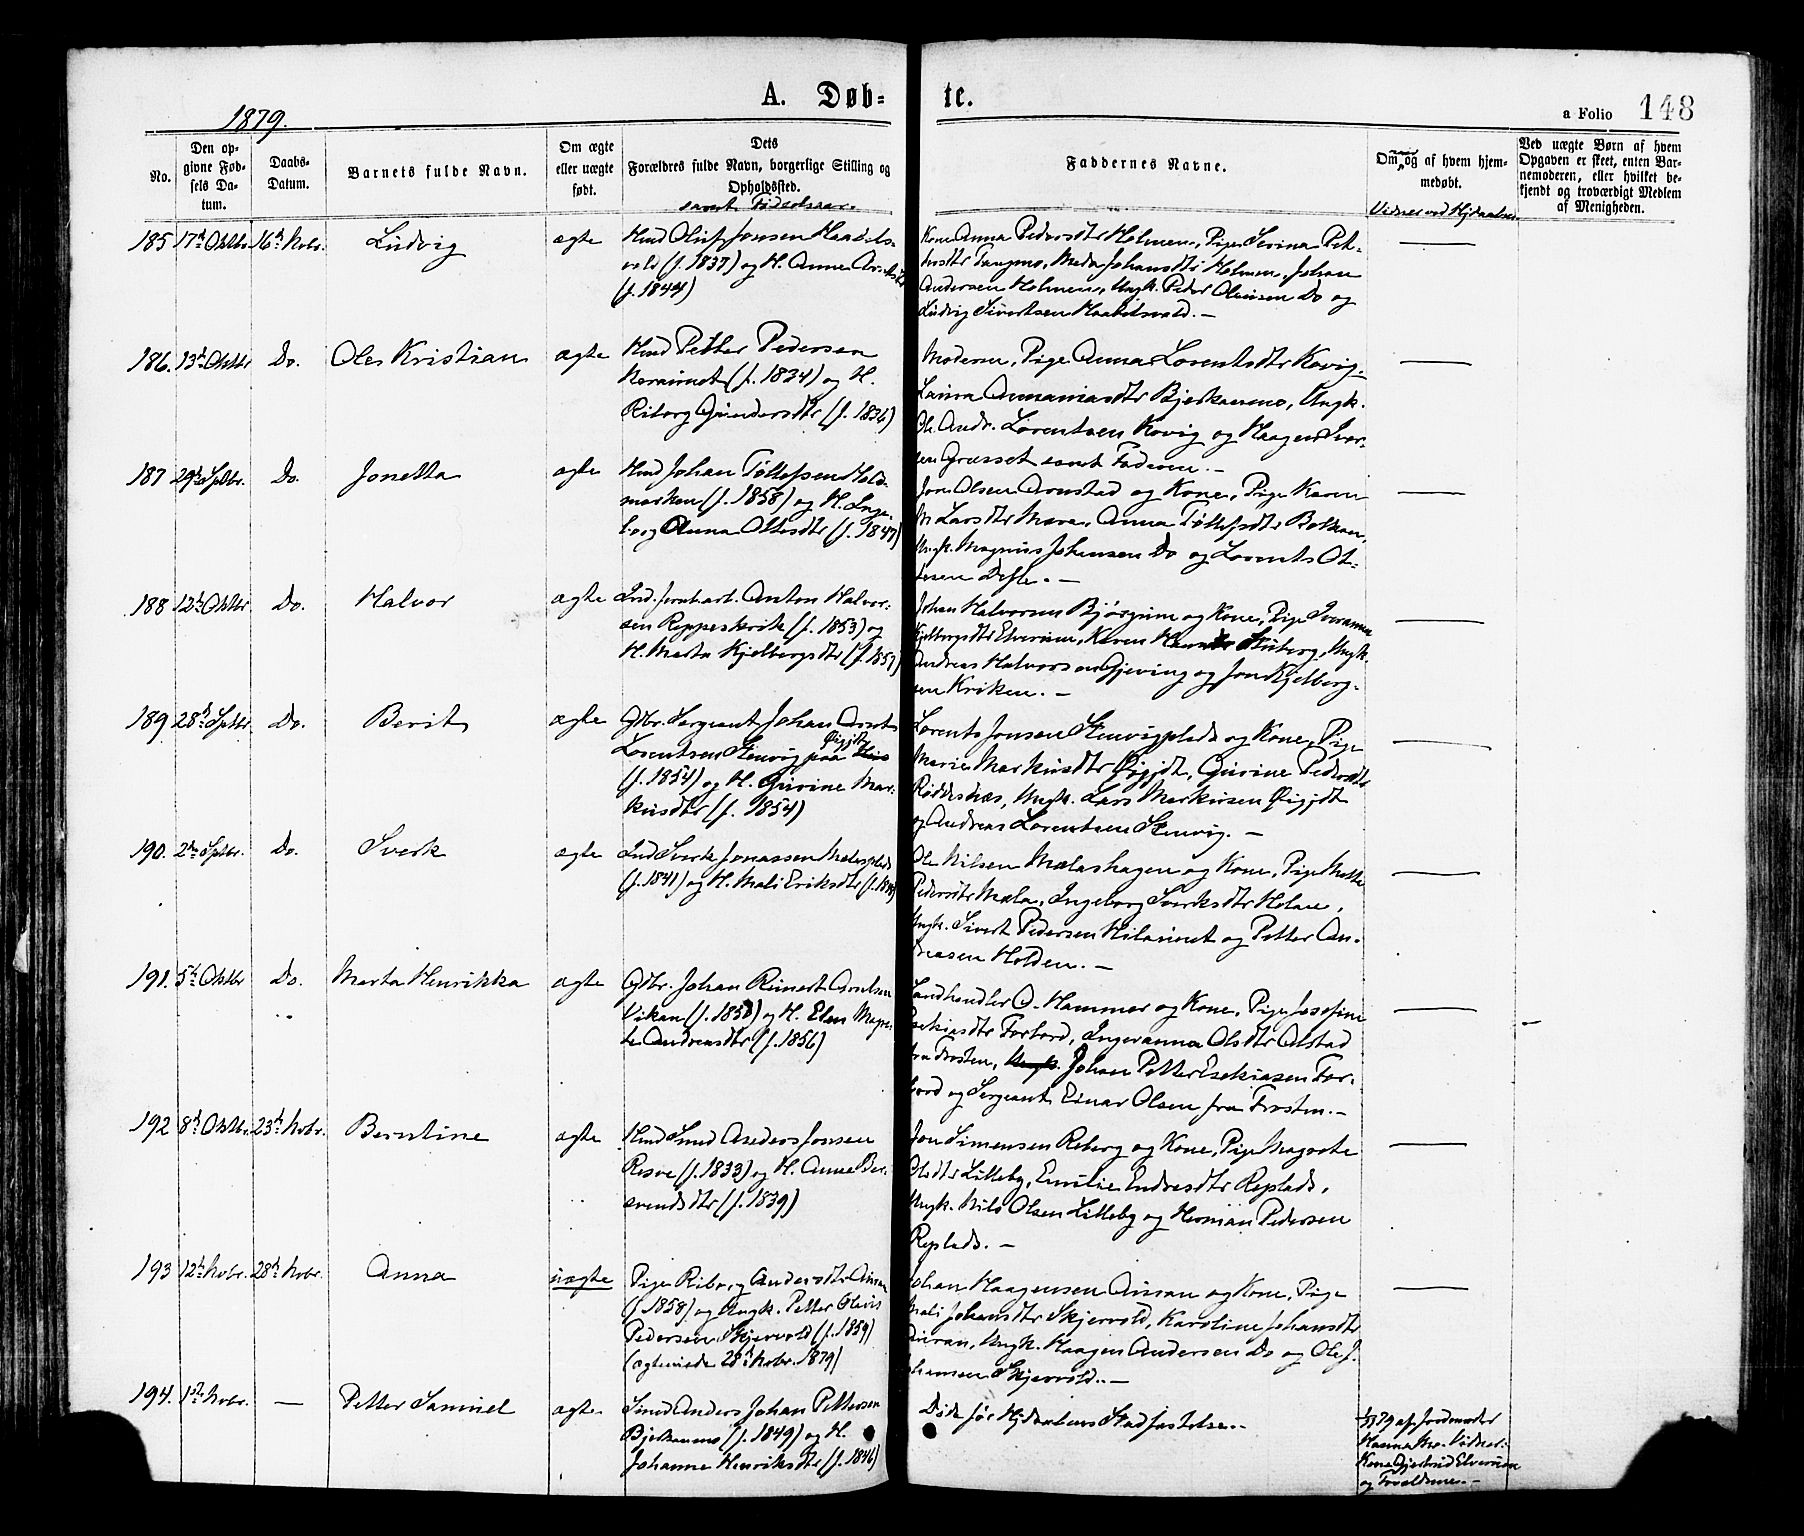 A. Døb-
te.
a Folio 148
1879.
No.
Den op-
givne Fød-
sels Da-
tum.
Daabs-
Datum.
Barnets fulde Navn.
Om ægte
eller uægte
født.
Dets
Forældres fulde Navn, borgerlige Stilling og
Opholdssted.
samt Fødselsaar.
Faddernes Navne.
Om, og af hvem hjem-
medøbt.
Vidner ved Hjdaaben
Ved uægte Børn af hvem
Opgaven er skeet, enten Bar-
nemoderen, eller hvilket be-
kjendt og troværdigt Medlem
af Menigheden.
185 17de Oktbr. 16de Novbr. Ludvig ægte
Hmd Oluf Jonsen Haabets-
vold (f. 1837) og H. Anne
(f. 1844)
Kone Anna Pedersdtr Holmen, Pige Serina Pet-
tersdtr Tangmo, Meda Johansdtr Holmen, Johan
Andersen Holmen, Ungk. Peder Olausen Do og
Ludvig Sivertsen Haabetsvold. —
186. 13de Oktbr Do. Ole Kristian ægte
Hmd Petter Pedersen
(f. 1834) og H.
Riborg Gundersdtr (f. 1836)
Moderen, Pige Anna Lorentsdtr Kovig,
Laura Annaniasdtr Bjerkanmo, Ungk.
Ole Andr. Lorentsen Kovig og Haagen Ivar-
sen Græsset samt Faderen. —
187 29de Septbr. Do. Jonetta ægte
Hmd Johan Tøllefsen Hold-
marken (f. 1858) og H. Inge-
borg Anna Ottesdtr (f. 1847)
Jon Olsen Arnstad og Kone, Pige Karen
M. Larsdtr Mære, Anna Tøllefsdtr Balkan,
Ungk. Magnus Johansen Do og Lorents Ot-
tesen Defle. —
188 12te Oktbr. Do. Halvor ægte
Ind. Jernb.arb. Anton Halvor-
sen Reppeskrik (f. 1853) og
H. Marta Kjelbergsdtr (f. 1857)
Johan Halvorsen Bjørgum og Kone, Pige Iveranna
Kjelbergsdtr Elverum, Karen Stuberg, Ungk.
Andreas Halvorsen Gjeving og Jon Kjelberg-
sen Kriken. —
189 28de Septbr. Do. Berit ægte
Gdbr. Sergeant Johan Arnt
Lorentsen Stenvig paa Øigjdt
(f. 1854) og H. Gurine Mar-
kusdtr (f. 1854)
Lorents Jonsen Stenvigplads og Kone, Pige
Marie Markusdtr Øigjdt, Gurine Pedersdtr
Røddesnæs, Ungk. Lars Markusen Øigjdt
og Andreas Lorentsen Stenvig. —
190. 2den Septbr. Do. Sverk ægte
Ind Sverk Jonassen Mælaplads
(f. 1841) og H. Mali Eriksdtr
Ole Nilsen Mælashagen og Kone, Pige Mette
Pedersdtr Mæla, Ingeborg Sverksdtr Holan,
Ungk. Sivert Pedersen Hilamnet og Petter An-
dreasen Holden. —
191. 5te Oktbr Do. Marta Henrikka ægte
Gdbr. Johan Reinert Arntsen
Vikan og H. Elen Magre-
te Andreasdtr (f. 1856)
Landhandler O. Hammer og Kone, Pige Josefine
Esekiasdtr Forbord, Ingeranna Olsdtr Alstad
fra Frosten, Ungk. Johan Petter Esekiasen For-
bord og Sergeant Einar Olsen fra Frosten. —
192 8de Oktbr. 23de Novbr. Berntine ægte
Hmd Smed Anders Jonsen
Resve (f. 1833) og H. Anne Ber-
svendsdtr (f. 1839)
Jon Simensen Reberg og Kone, Pige Magrete
Olsdtr Lilleby, Emilie Endresdtr Replads,
Ungk. Nils Olsen Lilleby og Herman Pedersen
Replads. —
193 12te Novbr. 28de Novbr. Anna uægte
Pige Riborg Andersdtr Auran
(f. 1858) og Ungk. Petter Olaus
Pedersen Skjervold (f. 1859)
(ægteviede 28de Novbr. 1879)
Johan Haagensen Auran og Kone, Pige
Mali Johansdtr Skjervold, Karoline Johansdtr
Auran, Ungk. Haagen Andersen Do og Ole J.
ohansen Skjervold. —
194. 1ste Novbr. — Petter Samuel ægte
Smed Anders Johan Pettersen
Bjerkanmo (f. 1849) og H.
Johanne Henriksdtr (f. 1846)
Døde før Hjdaabens Stadfæstelse. —
79 af Jordmoder
Hanna Moe. Vidner:
Kone Gjertrud Elverum
og Forældrene. —